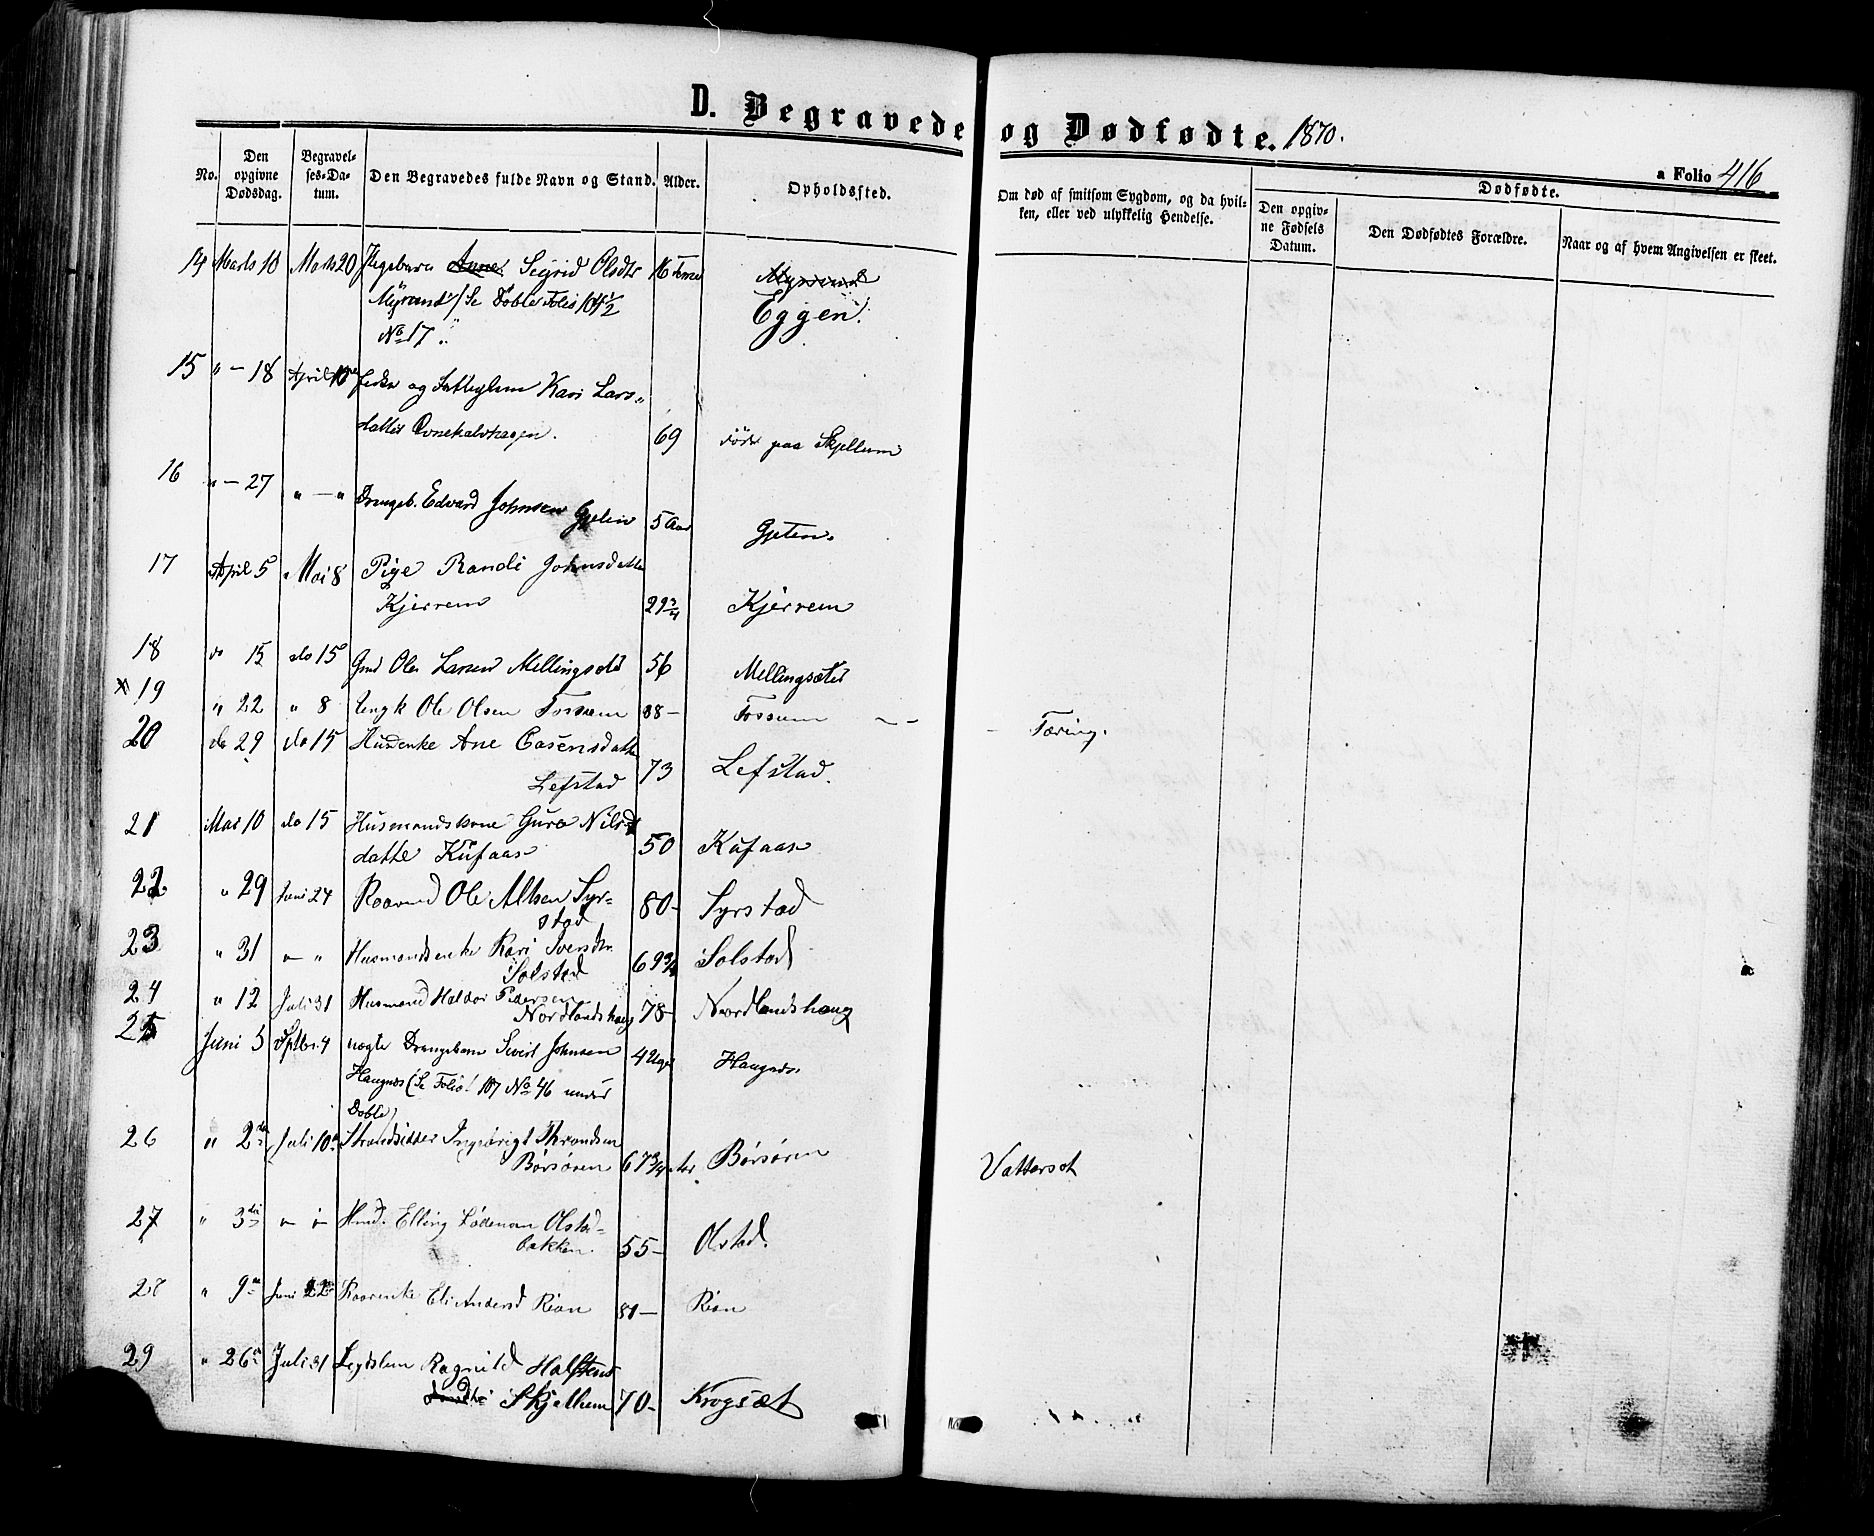 D. Begravede og Dødfødte. 1870.
a Folio 416
No. Den opgivne Dødsdag. Begravelses-Datum. Den Begravedes fulde Navn og Stand. Alder. Opholdssted. Om død af smitsom Sygdom, og da hvilken, eller ved ulykkelig Hendelse. Dødfødte. Den opgivne Fødsels Datum. Den Dødfødtes Forældre. Naar og af hvem Angivelsen er skeet.
14 Marts 10 Marts 20 Pigebarn Anne Sigrid Olsdtr 16 Timer
Myrand (Se Døbte Folio 104½ Eggen.
No 17
15 " - 18 April 10 Kari Lars-
datter 69 død paa Skjellum
16 " - 27 " - " Drengeb. Edvard Johnsen Gjeten 5 Aar Gjeten.
17 April 5 Mai 8 Pige Randi Johnsdatter
Kjerrem 29¾ Kjerrem
18 do 15 do 15 Gmd Ole Larsen Mellingsæter 56 Mellingsæter
x 19 " 22 " 8 Ungk Ole Olsen Fossum 38 - Fossum - - - Tæring.
20 do 29 do 15 Husenke Ane Casensdatter
Lefstad 73 Lefstad.
21 Mai 10 do 15 Husmandskone Guro Nils
datte Kufaas 50 Kufaas
22 " 29 Juni 24 Kaarmd Ole Syr-
stad 80 - Syrstad
23 " 31 - " Husmandsenke Kari Sversdtr
Solstad 69¾ Solstad
24 " 12 Juli 31 Husmand Haldor Pedersen
Nordlandshaug 78 - Nordlandshaug
25 Juni 5 Septbr. 4 uægte Drengebarn Sivert Johnsen 4 Uger Haugnæs
Haugnæs (Se Folio 107 No 46 under
Døbte)
26 " 2den Juli 10 Strandsidder Ingebrigt Throndsen
Børsøren 67¾ Aar Børsøren Vattersot
27 " 3die - " - Hmd. Elling Olstad-
bakken. 55 - Olstad.
28 " 9 Juni 22 Kaarenke Eli Andersd Rian 81 - Rian
29 " 26 Juli 31 Legdslem Ragnild Halstens
Skjellum 70 - Krogsæt